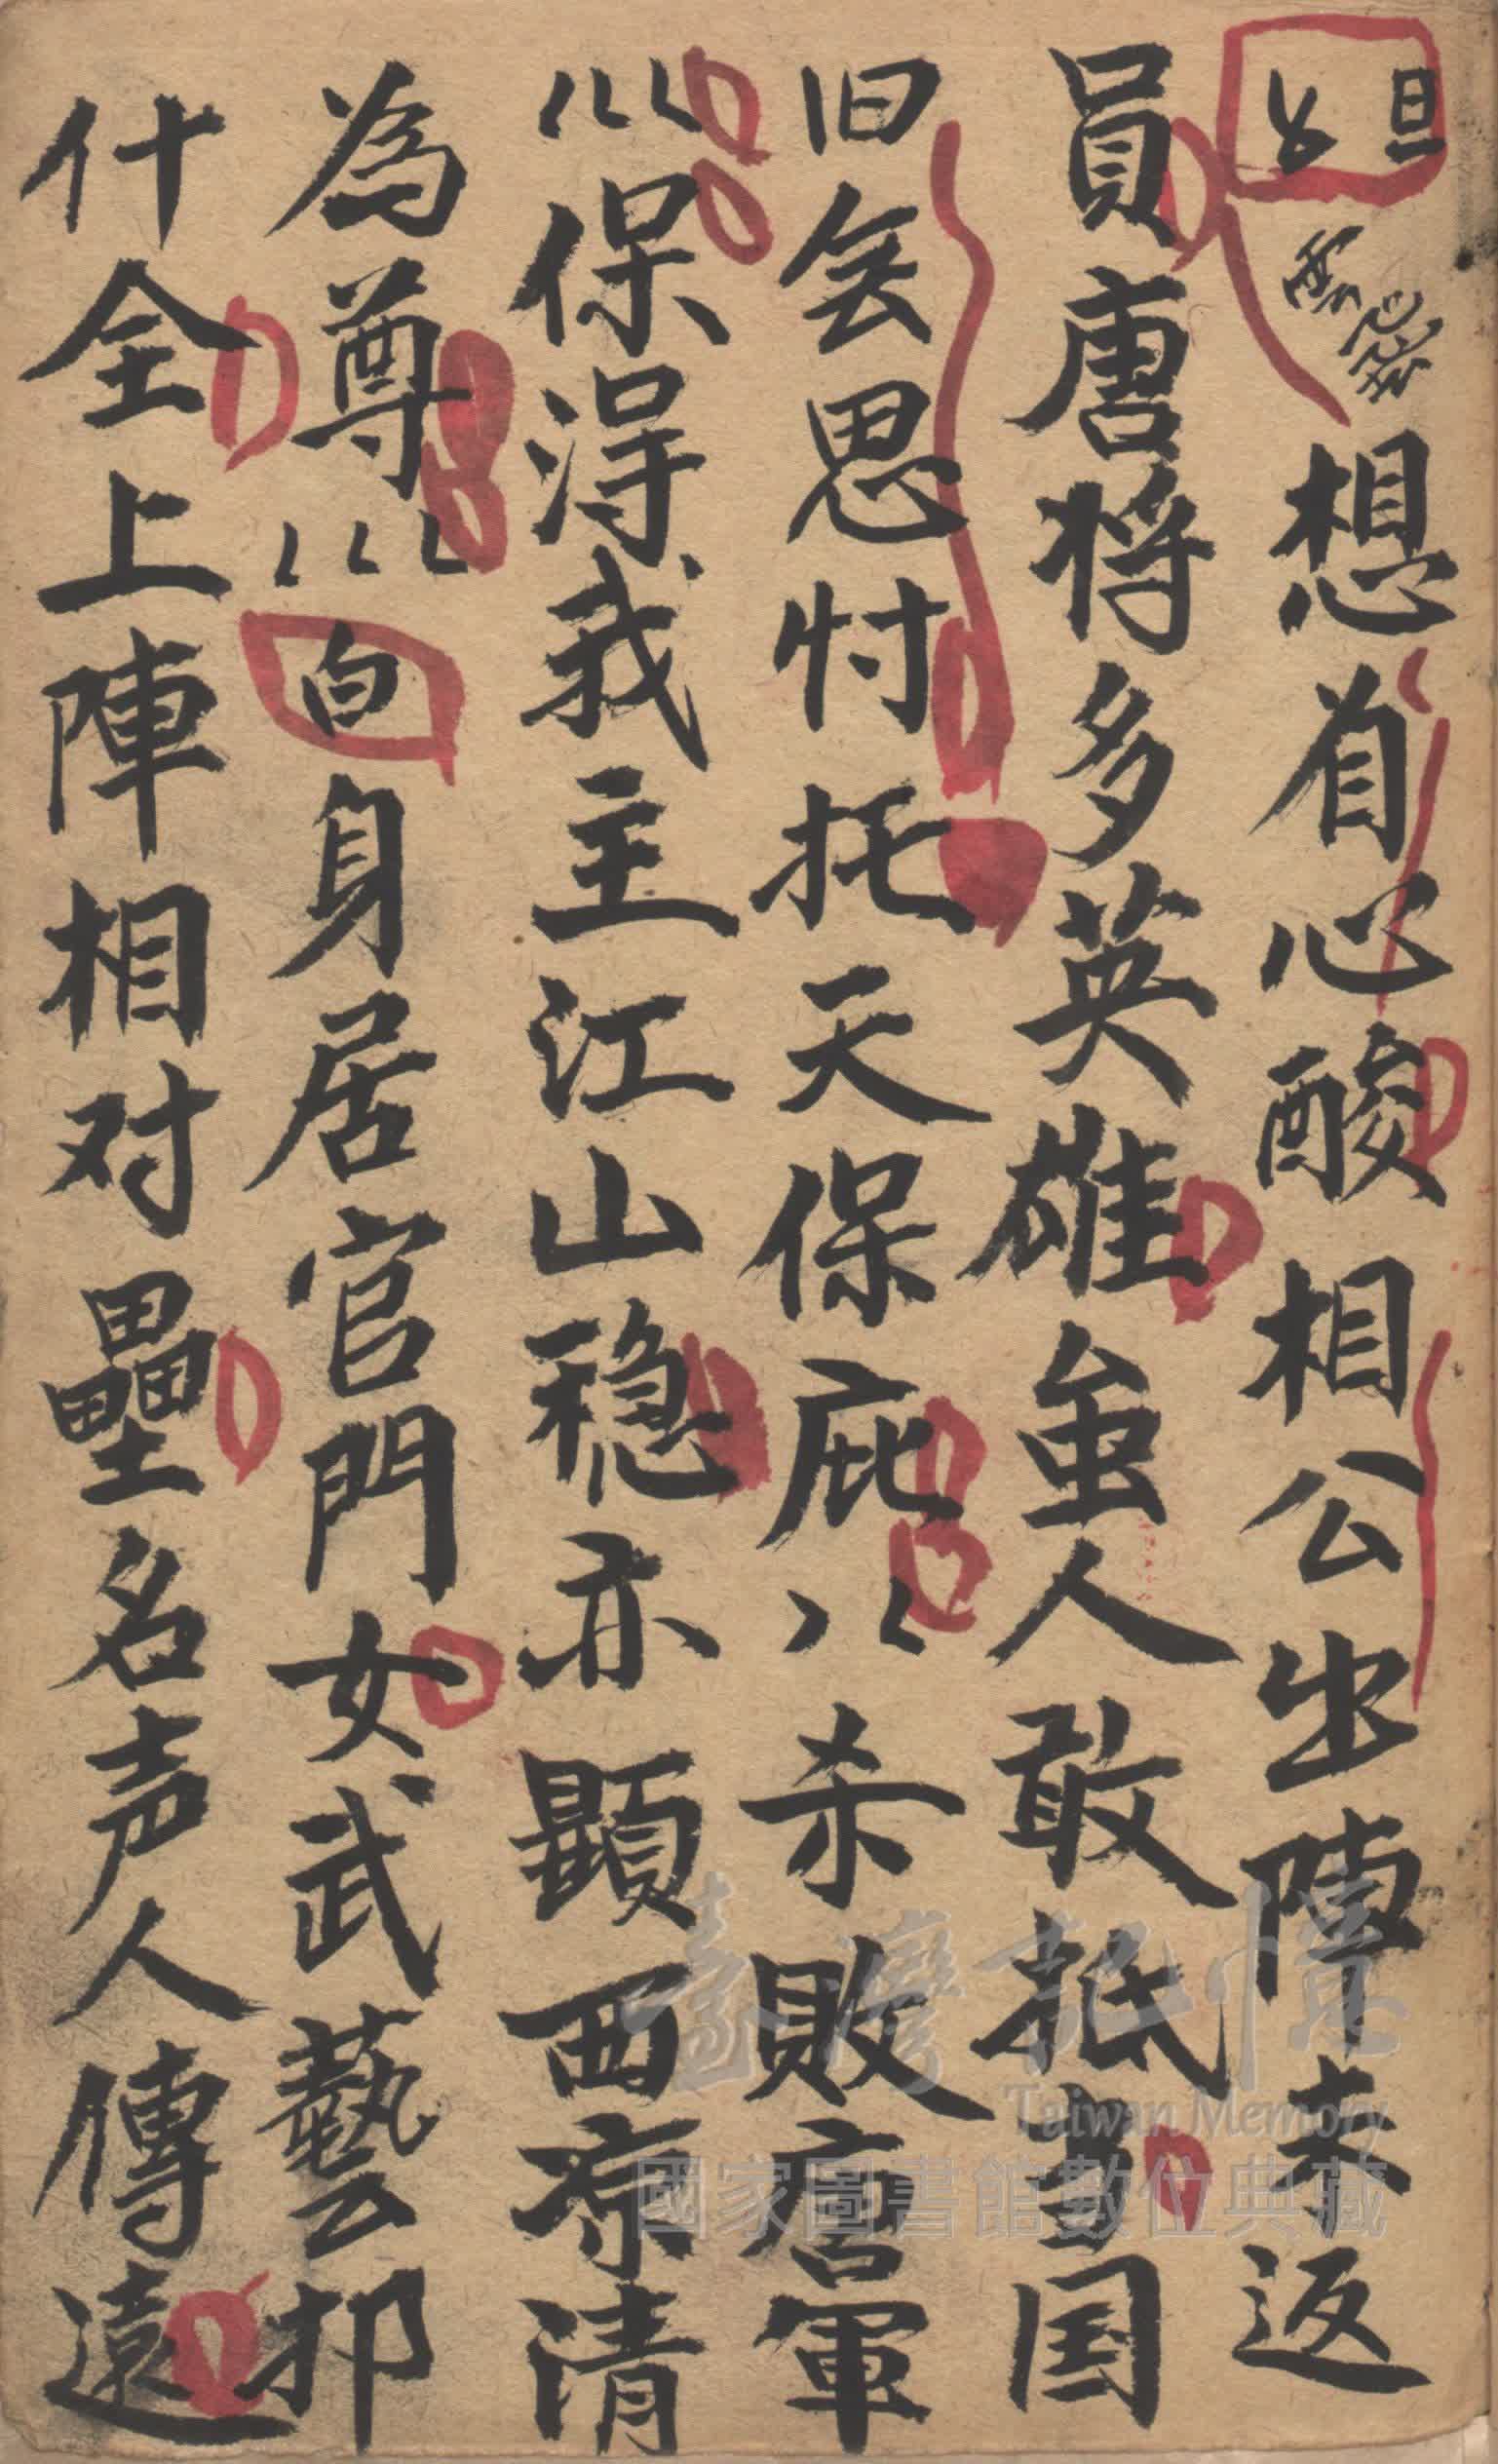 旦 想着心酸相公出陣未返
員唐將多英雄虽人敢抵当国
旧会思忖托天保庇杀敗唐軍
保得我主江山稳亦顕西凉清
為尊 白 身居官門女武藝邦
什全上陣相对壘名声人傳遠
臺灣記憶
Taiwan Memory
國家圖書館數位典藏